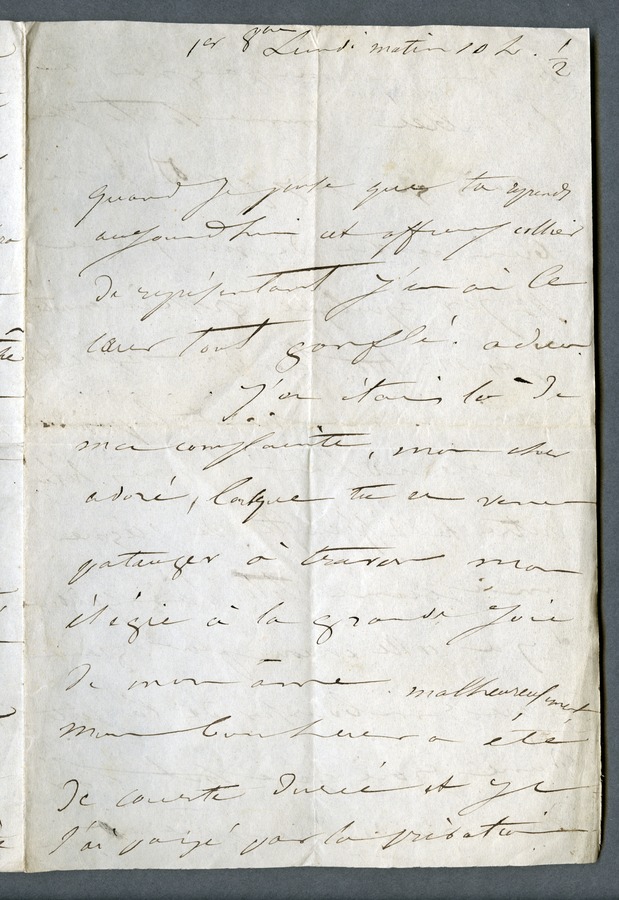 1er 8bre Lundi matin 10 h. 1/2
quand je pense que tu reprends
aujourd'hui cet affreux collier
de représentant j'en ai le
cœur tout gonflé. adieu.
J'en étais là de
ma complainte, mon cher
adoré, lorsque tu es venu
patauger à travers mon
élégie à la grande joie
de mon âme malheureusement
mon bonheur a été
de courte durée et je
l'ai payé par la privation